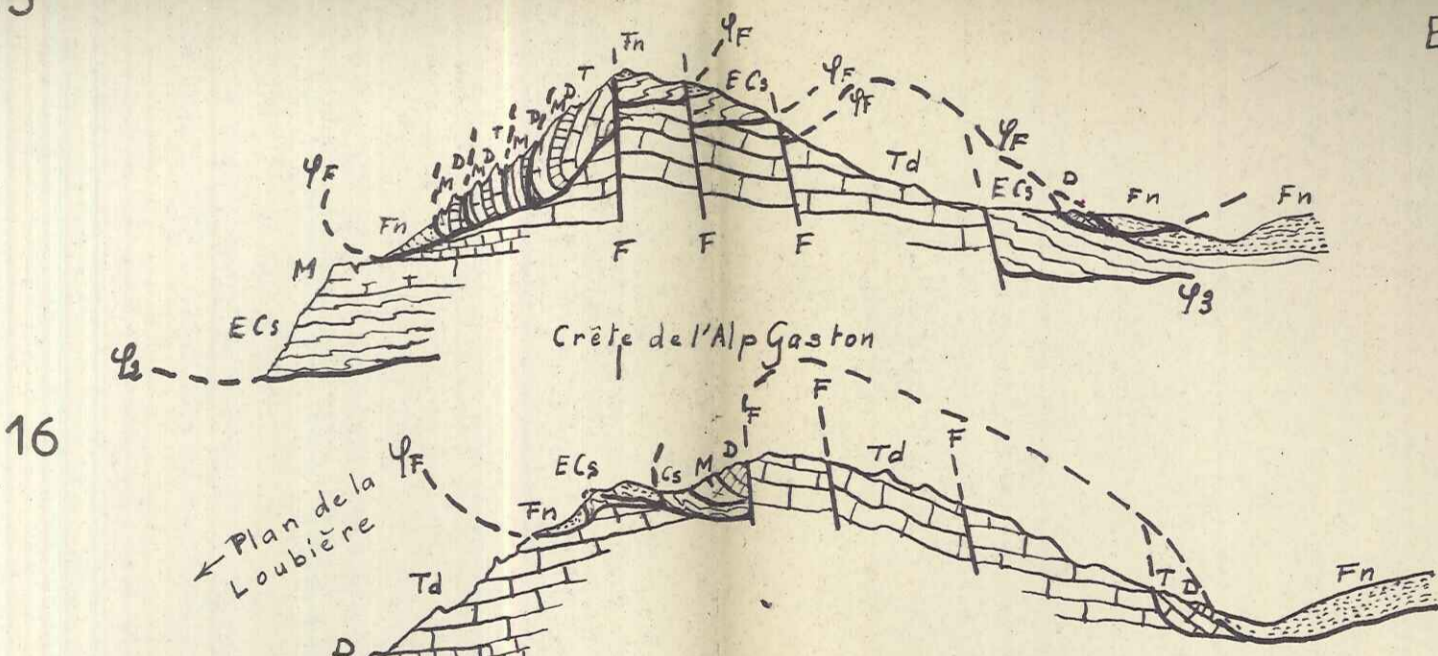 5
E
Fn
φF
T
ECs
φF
φF
D
M
D
M
T
D
M
D
M
φF
Fn
φF
Td
ECs
D
Fn
Fn
M
F
F
F
φ3
ECs
φ2
Crête de l'Alp Gaston
16
F
F
F
Td
φF
ECs
Cs
M
D
Fn
Plan de la
Loubière
Td
T
D
Fn
D